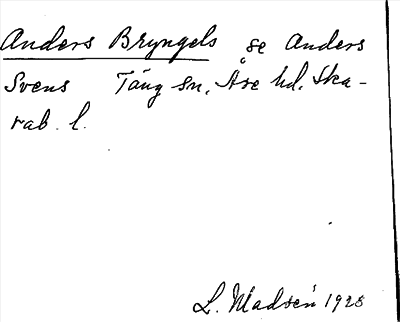 Anders Bryngels se Anders
Svens Täng sn, Åse hd, Ska-
rab. l.
L. Madsén 1928